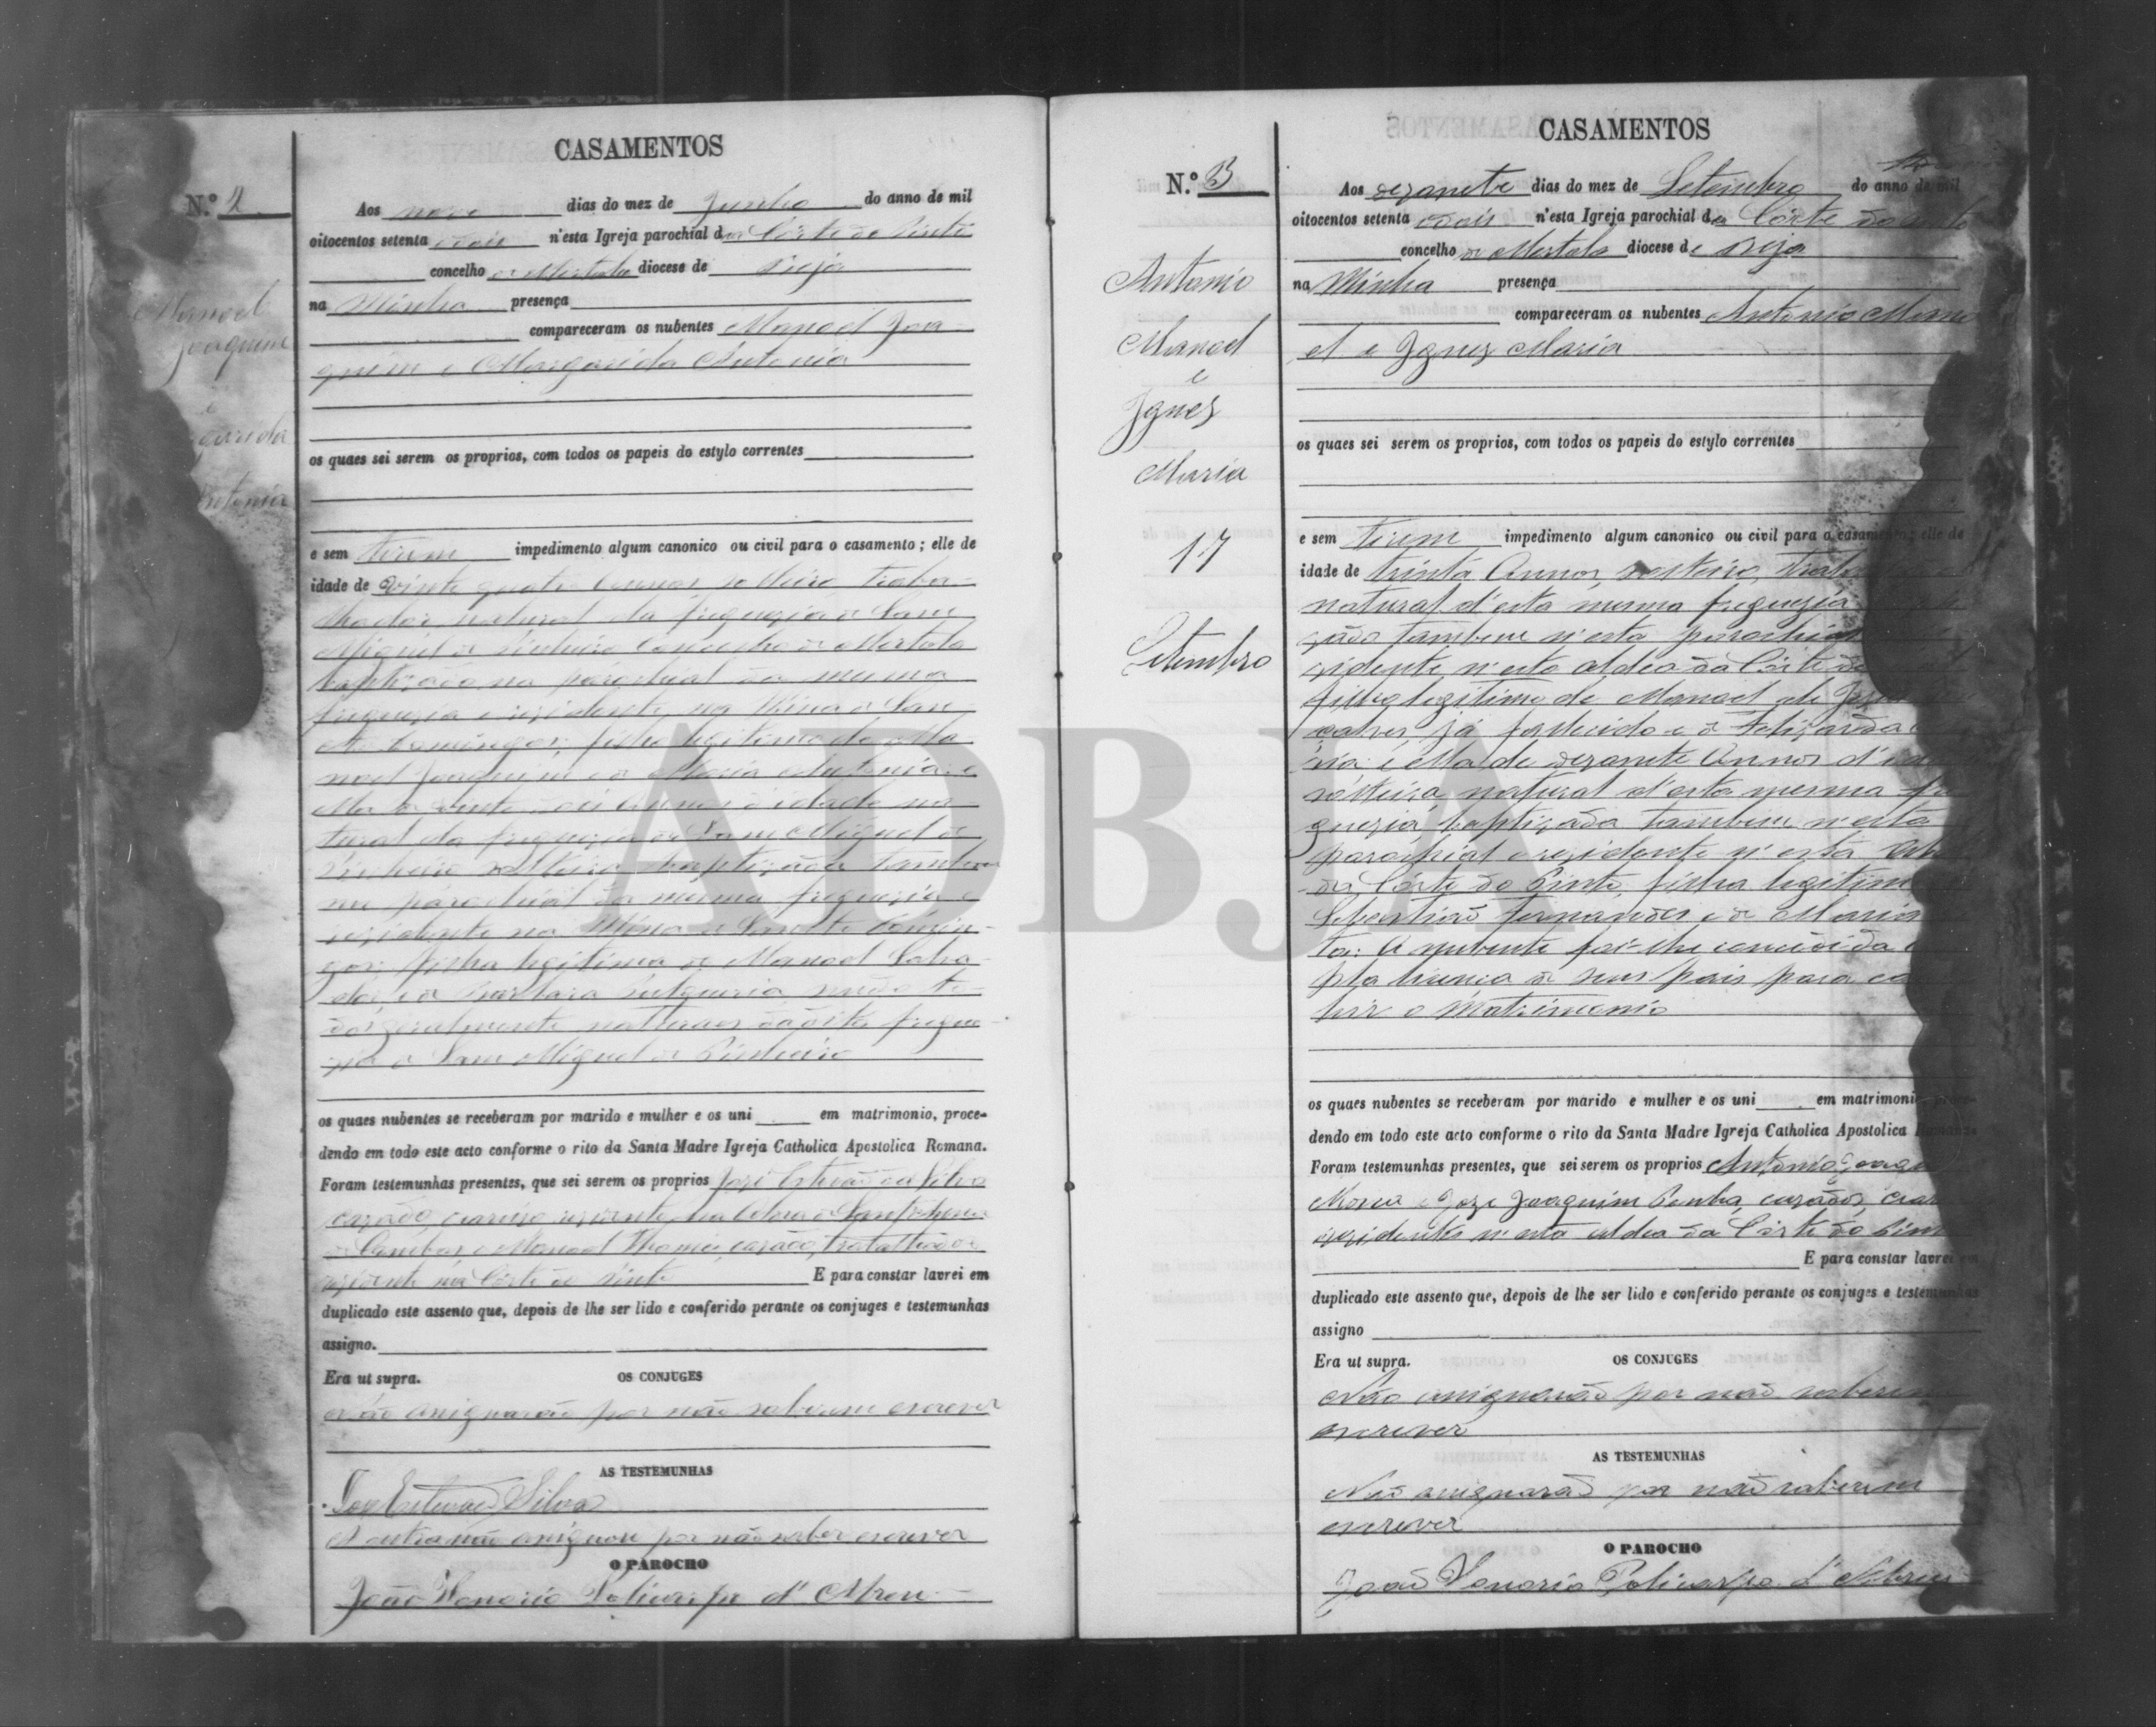 CASAMENTOS
N.º 2
Aos nove dias do mez de Junho do anno de mil
oitocentos setenta e dois n'esta Igreja parochial da Côrte do Pinto
concelho de Mertola diocese de Beja
na Minha presença
compareceram os nubentes Manoel Joa
quim e Margarida Antonia
Manoel
Joaquim
e
garida
Antonia
os quaes sei serem os proprios, com todos os papeis do estylo correntes
e sem terem impedimento algum canonico ou civil para o casamento; elle de
idade de Vinte quatro Annos, solteiro, traba
lhador natural da freguezia de Sam
Miguel de Pinheiro Concelho de Mertola
baptizado na parochial da mesma
freguezia e rezidente na Mina de Sam
Domingos; filho legitimo de Ma
noel Joaquim e de Maria Antonia; e
ella de Vinte Annos d'idade na
tural da freguezia de Sam Miguel de
Pinheiro solteira baptizada tambem
na parochial da mesma freguezia e
rezidente na Mina de Domin
gos; filha legitima de Manoel
e de Barbara sendo to
dos naturaes da dita fregue
zia de Sam Miguel de Pinheiro
os quaes nubentes se receberam por marido e mulher e os uni em matrimonio, proce-
dendo em todo este acto conforme o rito da Santa Madre Igreja Catholica Apostolica Romana.
Foram testemunhas presentes, que sei serem os proprios José Estevão da Silva
cazado, rezidente na
e Manoel Thomé, cazado, trabalhador
rezidente na Côrte do Pinto E para constar lavrei em
duplicado este assento que, depois de lhe ser lido e conferido perante os conjuges e testemunhas
assigno.
Era ut supra. OS CONJUGES
Não assignarão por não saberem escrever
AS TESTEMUNHAS
José Estevão Silva
A outra não assignou por não saber escrever
O PAROCHO
João Venancio Policarpo d'Abreu
CASAMENTOS
N.º 3
Aos dezanete dias do mez de Setembro do anno de mil
oitocentos setenta e dois n'esta Igreja parochial da Côrte do Pinto
concelho de Mertola diocese de Beja
na Minha presença
compareceram os nubentes Antonio Mano
el e Ignez Maria
Antonio
Manoel
e
Ignez
Maria
17
Setembro
os quaes sei serem os proprios, com todos os papeis do estylo correntes
e sem terem impedimento algum canonico ou civil para o casamento; elle de
idade de trinta Annos, solteiro,
natural d'esta mesma freguezia
zado tambem n'esta parochial
zidente n'esta aldea da Côrte do
filho legitimo de Manoel de
já fallecido e de Felizarda
ria: e ella de dezanete Annos d'
solteira, natural d'esta mesma fre
guezia, baptizada tambem n'esta
parochial e rezidente n'esta
da Côrte do Pinto, filha legitima
Sebastião Fernandes e de Maria
ta: A nubente foi-lhe concedida
licença de seus pais para
hir o Matrimonio
os quaes nubentes se receberam por marido e mulher e os uni em matrimonio, proce-
dendo em todo este acto conforme o rito da Santa Madre Igreja Catholica Apostolica Romana.
Foram testemunhas presentes, que sei serem os proprios Antonio Joaqu
e José Joaquim Penha, cazados,
rezidentes n'esta aldea da Côrte do Pinto
E para constar lavrei em
duplicado este assento que, depois de lhe ser lido e conferido perante os conjuges e testemunhas
assigno
Era ut supra. OS CONJUGES
Não assignarão por não saberem
escrever
AS TESTEMUNHAS
Não assignarão por não saberem
escrever
O PAROCHO
João Venancio Policarpo d'Abreu
ADBJA